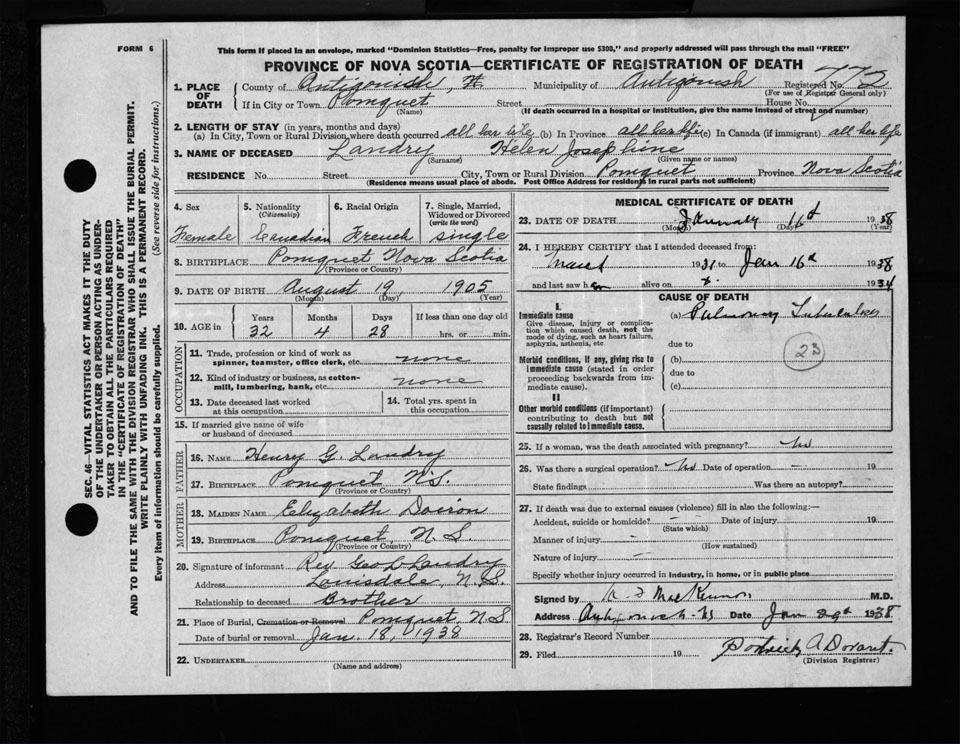 FORM 6
This form if placed in an envelope, marked "Dominion Statistics—Free, penalty for improper use $300," and properly addressed will pass through the mail "FREE"
PROVINCE OF NOVA SCOTIA—CERTIFICATE OF REGISTRATION OF DEATH
1. PLACE OF DEATH County of Antigonish, Municipality of Antigonish Registered No. 772
(For use of Registrar General only)
If in City or Town Pomquet Street House No.
(Name) (If death occurred in a hospital or institution, give the name instead of street and number)
2. LENGTH OF STAY (in years, months and days)
(a) In City, Town or Rural Division where death occurred all her life (b) In Province all her life (c) In Canada (if immigrant) all her life
3. NAME OF DECEASED Landry Helen Josephine
(Surname) (Given name or names)
RESIDENCE No. Street City, Town or Rural Division Pomquet Province Nova Scotia
(Residence means usual place of abode. Post Office Address for residents in rural parts not sufficient)
4. Sex 5. Nationality (Citizenship) 6. Racial Origin 7. Single, Married, Widowed or Divorced (write the word)
Female Canadian French single
8. BIRTHPLACE Pomquet Nova Scotia
(Province or Country)
9. DATE OF BIRTH August 19, 1905
(Month) (Day) (Year)
10. AGE in Years Months Days If less than one day old
32 4 28 hrs. or min.
OCCUPATION
11. Trade, profession or kind of work as spinner, teamster, office clerk, etc. none
12. Kind of industry or business, as cotton-mill, lumbering, bank, etc. none
13. Date deceased last worked at this occupation 14. Total yrs. spent in this occupation
15. If married give name of wife or husband of deceased
FATHER
16. NAME Henry G. Landry
17. BIRTHPLACE Pomquet N.S.
(Province or Country)
MOTHER
18. MAIDEN NAME Elizabeth Doiron
19. BIRTHPLACE Pomquet, N.S.
(Province or Country)
20. Signature of informant Rev Geo L Landry
Address Louisdale, N.S.
Relationship to deceased Brother
21. Place of Burial, Cremation or Removal Pomquet, N.S
Date of burial or removal Jan. 18, 1938
22. UNDERTAKER
(Name and address)
MEDICAL CERTIFICATE OF DEATH
23. DATE OF DEATH January 16th 1938
(Month) (Day) (Year)
24. I HEREBY CERTIFY that I attended deceased from:
March 1931 to Jan 16th 1938
and last saw her alive on 1934
CAUSE OF DEATH
I.
Immediate cause (a) Pulmonary Tuberculosis
Give disease, injury or complication which caused death, not the mode of dying, such as heart failure, asphyxia, asthenia, etc.
due to
23
Morbid conditions, if any, giving rise to immediate cause (stated in order proceeding backwards from immediate cause).
(b)
due to
(c)
II
Other morbid conditions (if important) contributing to death but not causally related to immediate cause.
25. If a woman, was the death associated with pregnancy? No
26. Was there a surgical operation? No Date of operation — 19
State findings Was there an autopsy?
27. If death was due to external causes (violence) fill in also the following:—
Accident, suicide or homicide? — Date of injury 19
(State which)
Manner of injury —
(How sustained)
Nature of injury —
Specify whether injury occurred in industry, in home, or in public place
Signed by MacKinnon M.D.
Address Antigonish NS Date Jan 29th 1938
28. Registrar's Record Number
29. Filed 19
(Division Registrar)
SEC. 46—VITAL STATISTICS ACT MAKES IT THE DUTY
OF THE UNDERTAKER OR PERSON ACTING AS UNDER-
TAKER TO OBTAIN ALL THE PARTICULARS REQUIRED
IN THE "CERTIFICATE OF REGISTRATION OF DEATH"
AND TO FILE THE SAME WITH THE DIVISION REGISTRAR WHO SHALL ISSUE THE BURIAL PERMIT.
WRITE PLAINLY WITH UNFADING INK. THIS IS A PERMANENT RECORD.
Every item of information should be carefully supplied. (See reverse side for instructions.)